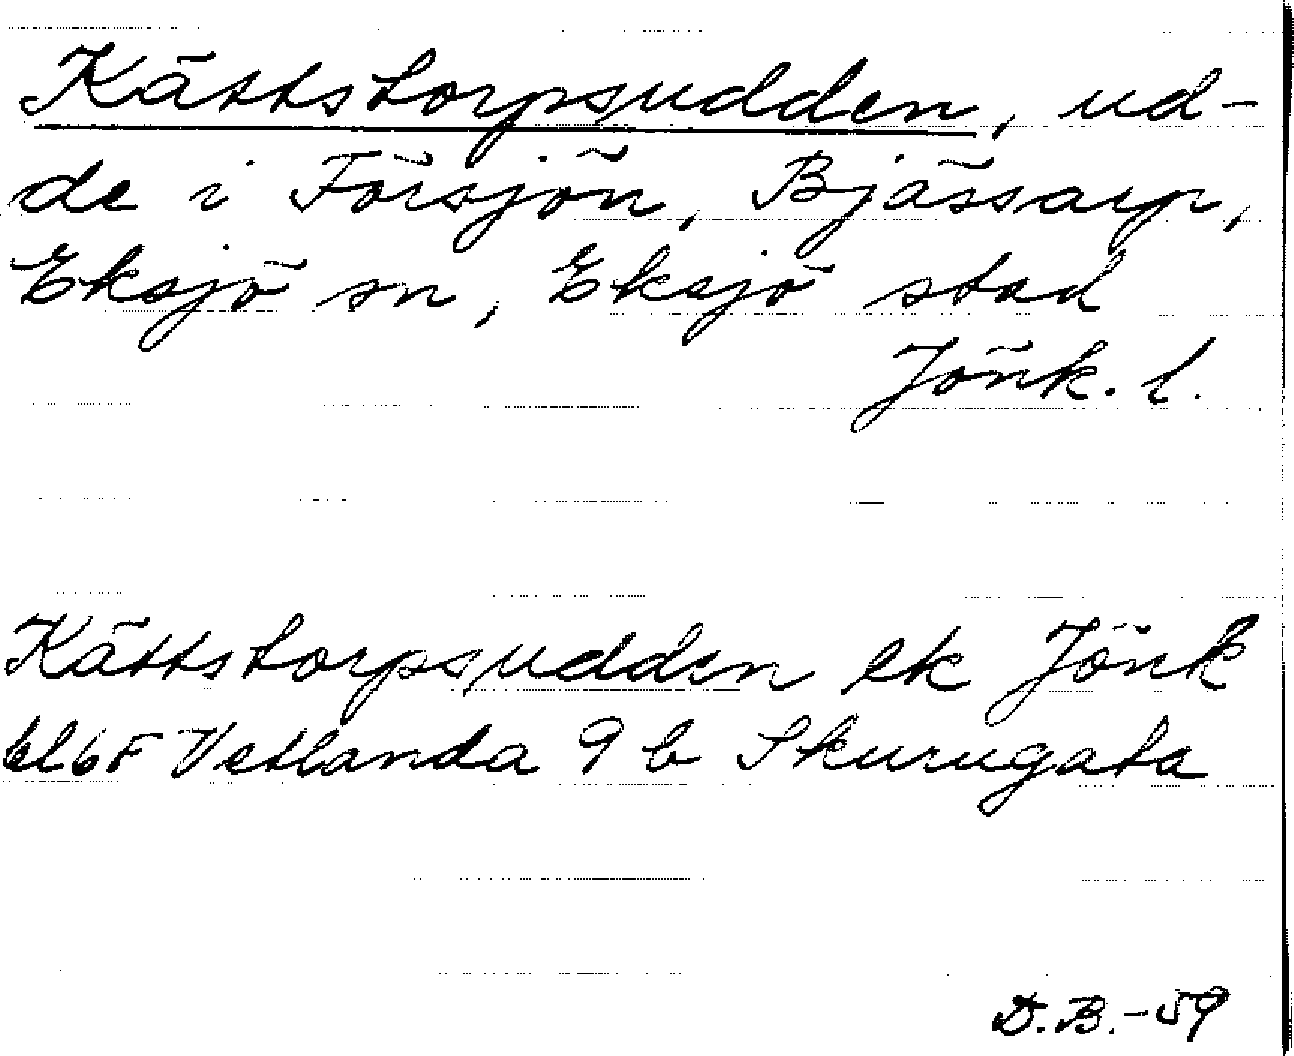 Kättstorpsudden, ud-
de i Försjön, Bjässarp,
Eksjö sn, Eksjö stad
Jönk. l.
Kättstorpsudden ek Jönk
bl 6F Vetlanda 9 b Skurugata
D.B.-59